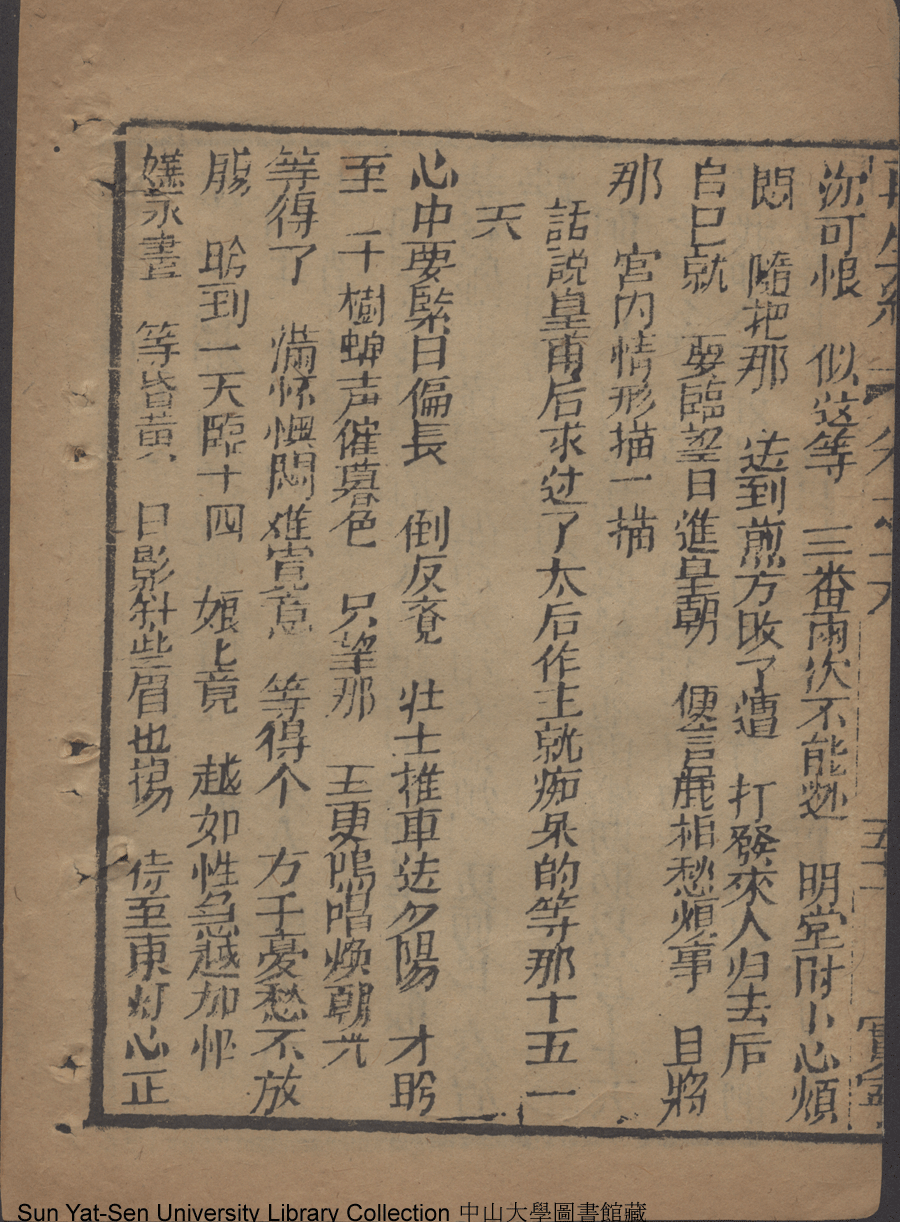 你可恨　似这等　三番兩次不能迯　明堂附卜心煩
悶　隨把那　送到煎方收了遭　打發來人归去后
自已就　要臨望日進皇朝　便言麗相愁煩事　且將
那　宮内情形描一描
話説皇甫后求过了太后作主就痴呆的等那十五一
天
心中要緊日偏長　倒反竟　壮士推車送夕陽　才盼
至　千樹蟬声催暮色　只望那　王更鳴唱煥朝光
等得了　滿怀懊悶难寛意　等得个　方千憂愁不放
腹　盼到一天臨十四　娘上竟　越如性急越加忙
嫌永晝　等昏黄　日影斜些眉也揚　待至東灯心正
Sun Yat-Sen University Library Collection 中山大學圖書館藏